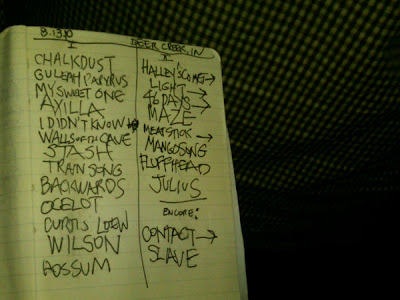 8.13.10
DEER CREEK, IN
I
CHALKDUST
GUELAH PAPYRUS
MY SWEET ONE
AXILLA
I DIDN'T KNOW
WALLS OF THE CAVE
STASH
TRAIN SONG
BACKWARDS
OCELOT
CURTIS LOEW
WILSON
POSSUM
II
HALLEY'S COMET→
LIGHT→
46 DAYS→
MAZE
MEATSTICK→
MANGO SONG
FLUFFHEAD
JULIUS
ENCORE:
CONTACT→
SLAVE